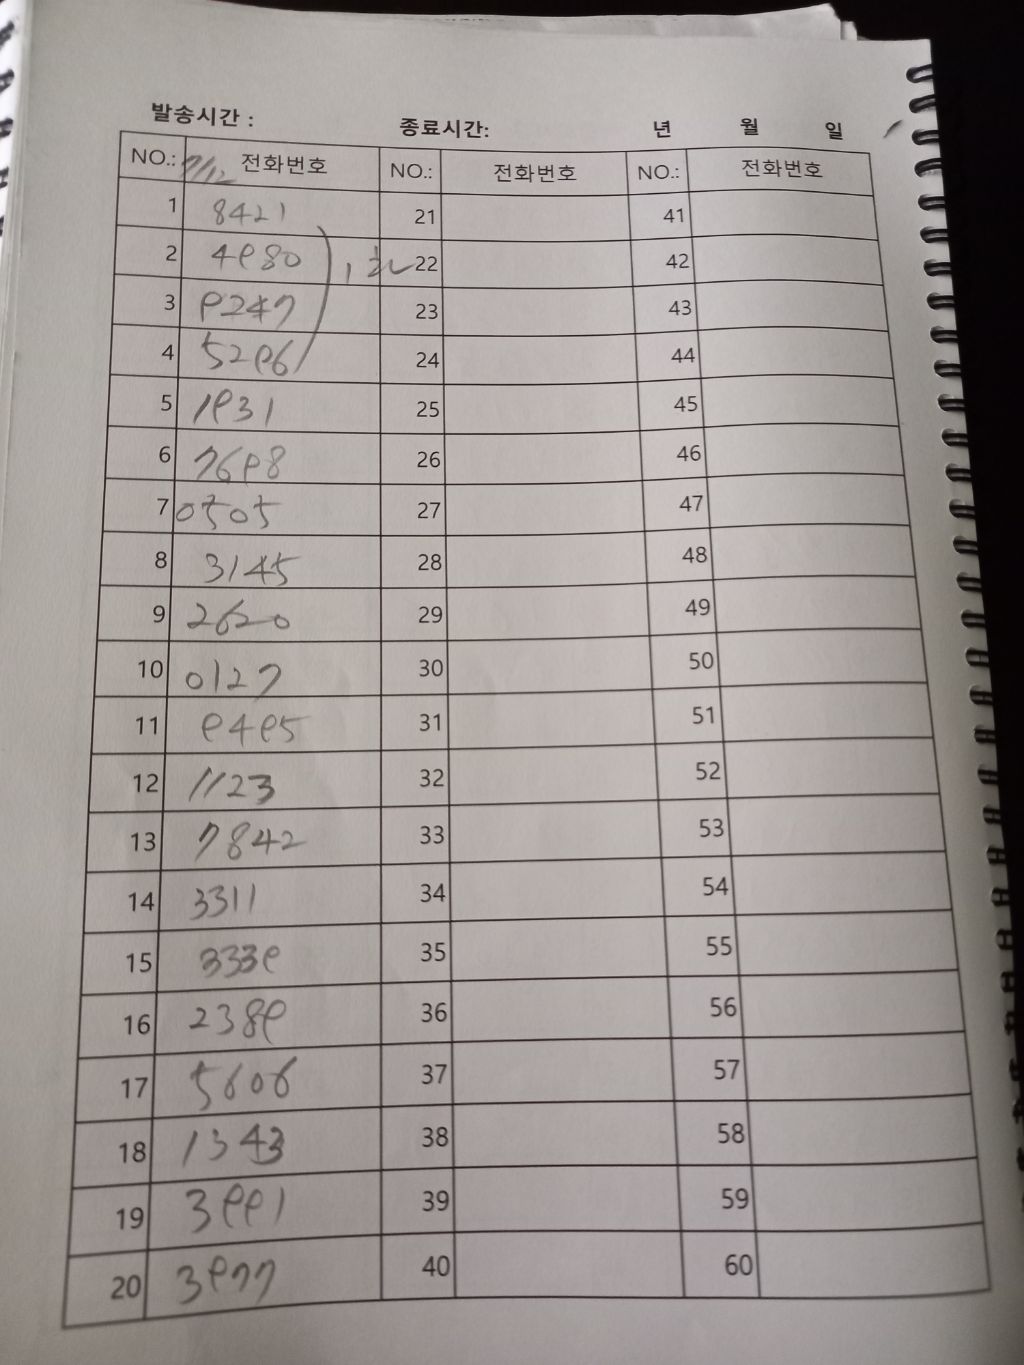 발송시간 : 종료시간: 년 월 일
NO.: 7/12 전화번호 NO.: 전화번호 NO.: 전화번호
1 8421 21 41
2 4980 22 42
3 9247 23 43
4 5296 24 44
5 1931 25 45
6 7698 26 46
7 0505 27 47
8 3145 28 48
9 2620 29 49
10 0127 30 50
11 9495 31 51
12 1123 32 52
13 7842 33 53
14 3311 34 54
15 3339 35 55
16 2389 36 56
17 5606 37 57
18 1343 38 58
19 3991 39 59
20 3977 40 60